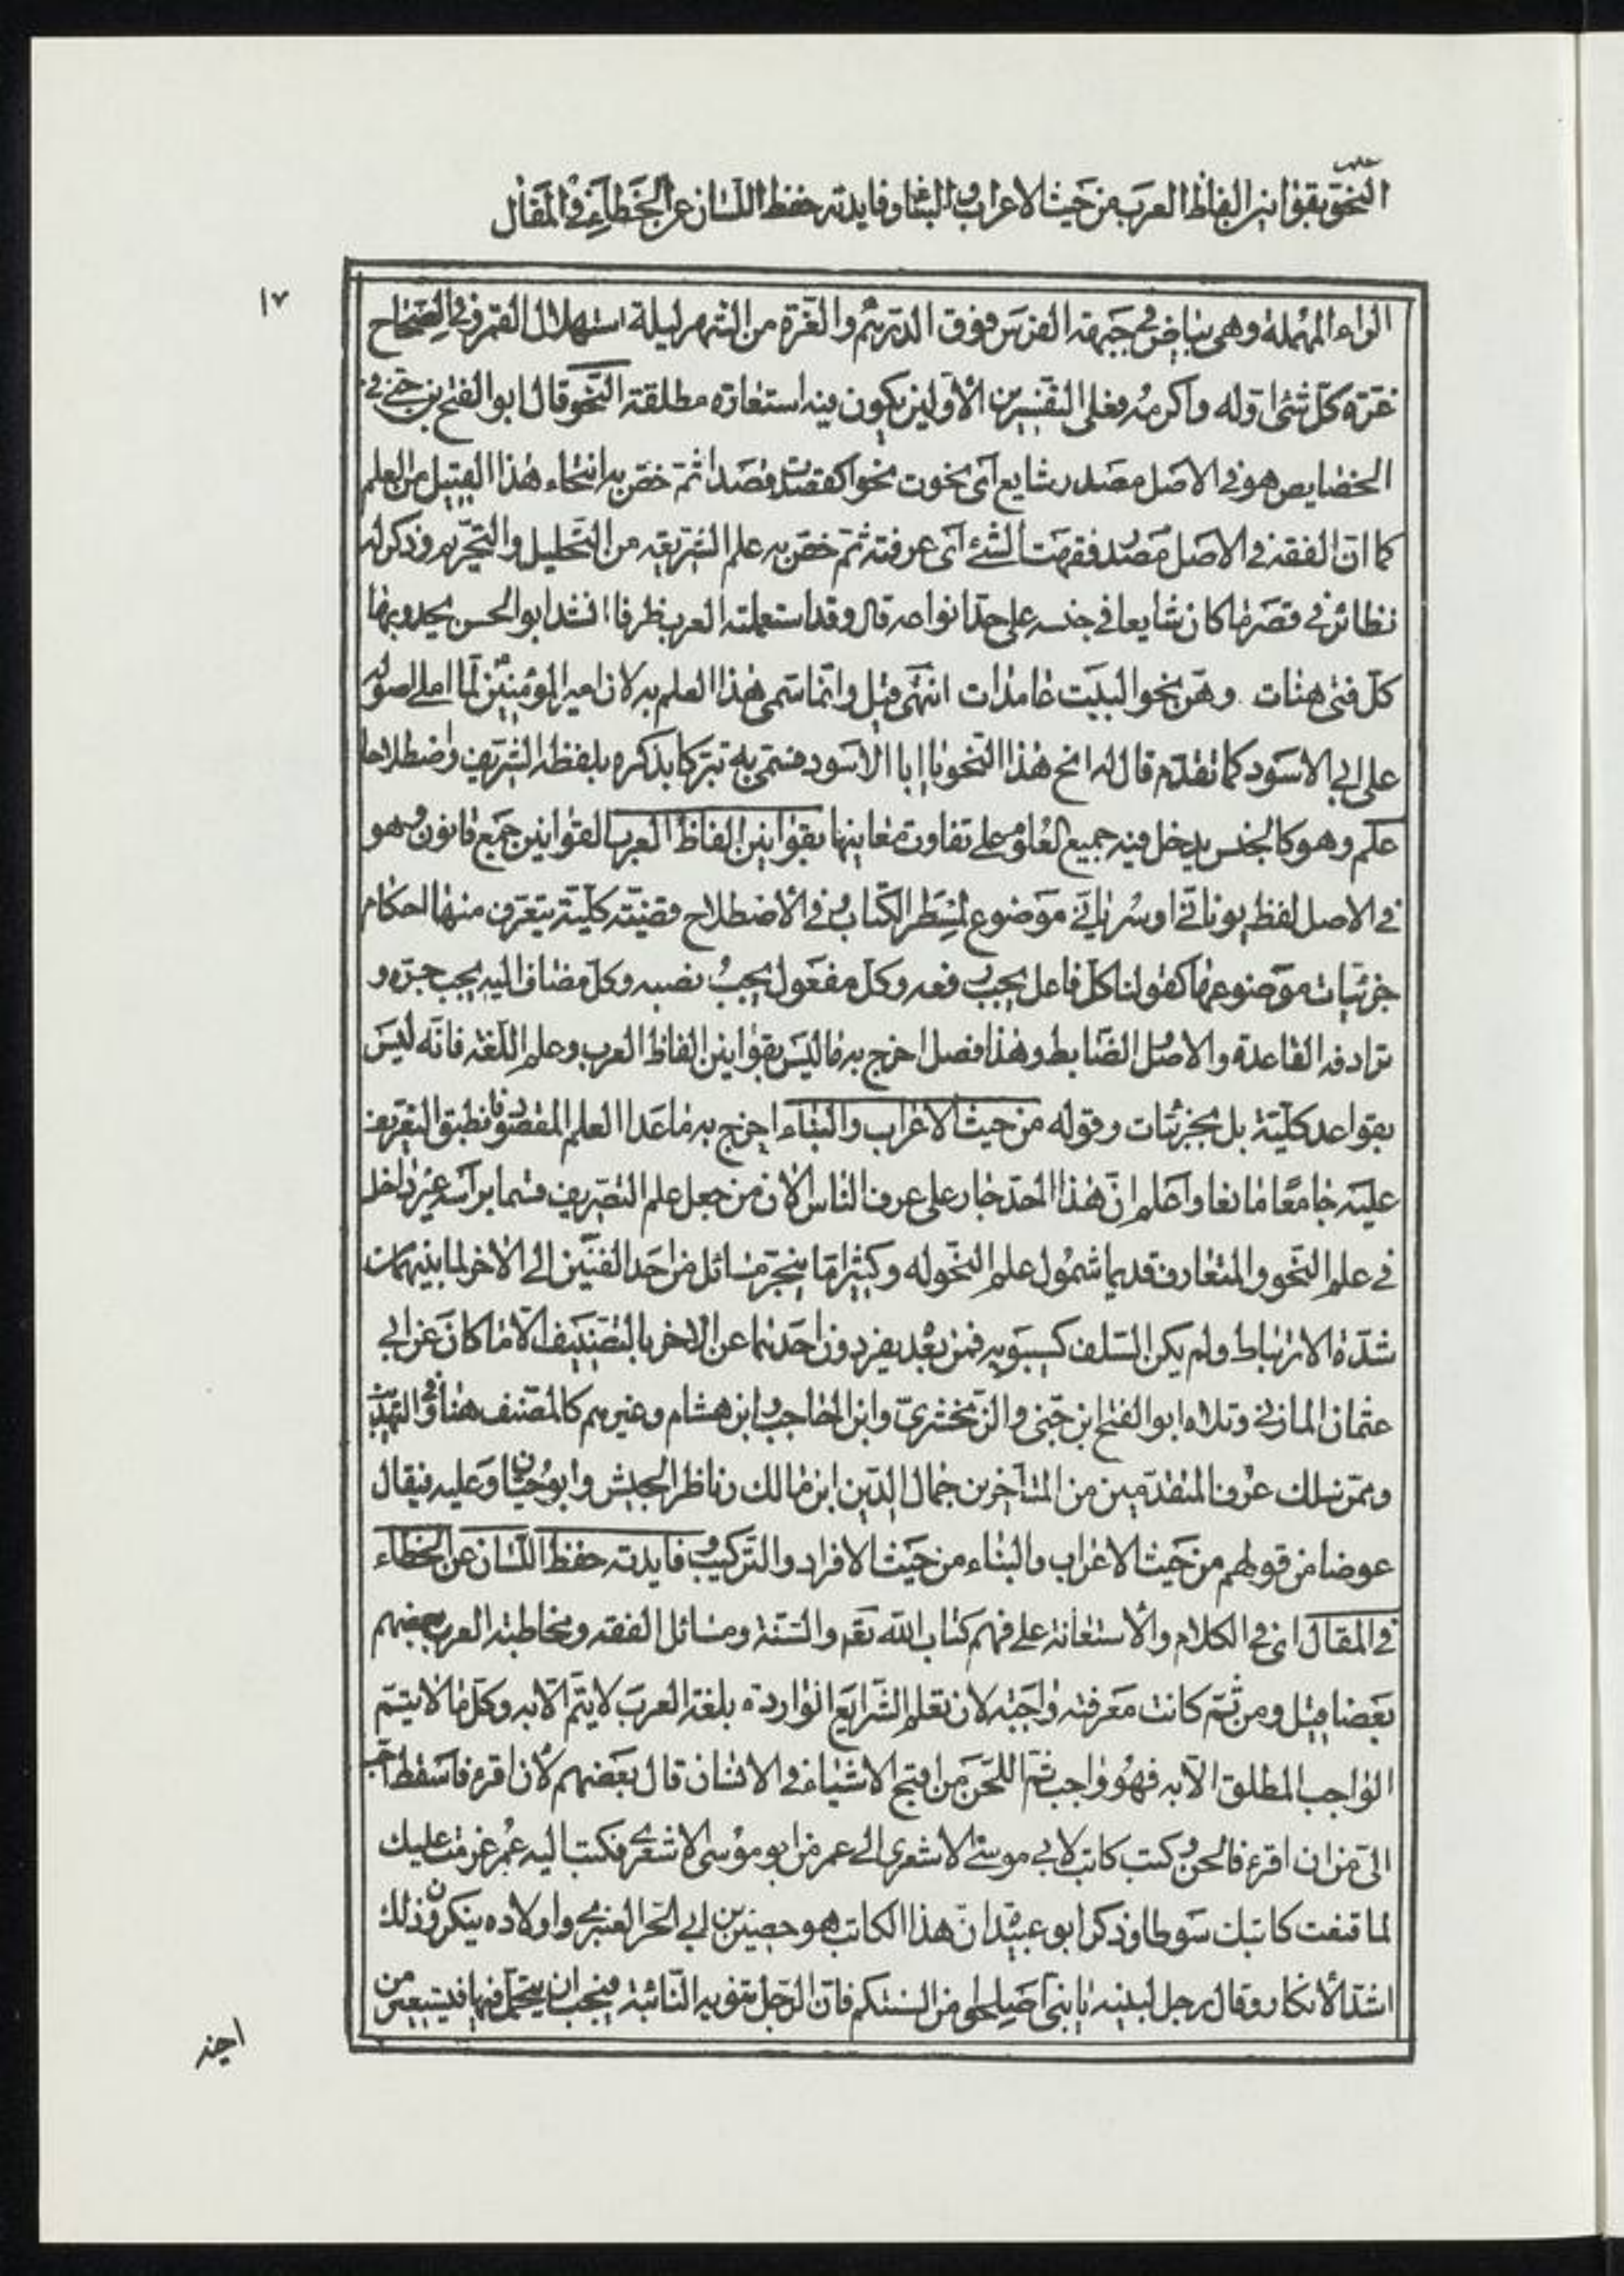 علم
النحو بقوانين الفاظ العرب من حيث الاعراب والبناء وفايدته حفظ اللسان عن الخطاء في المقال
١٧
الراء المهملة وهى بياض في جبهة الفرس فوق الدرهم والغرة من الشهر ليلة استهلال القمر وفي الصحاح
غرة كل شئ اوله واكرمه فعلى التفسيرين الأولين يكون فيه استعارة مطلقة النحو قال ابو الفتح بن جني في
الخصايص هو في الاصل مصدر شايع اى نحوت نحوا كقصدت قصدا ثم خص به انتحاء هذا القبيل من العلم
كما ان الفقه في الاصل مصدر فقهت الشئ اى عرفته ثم خص به علم الشريعة من التحليل والتحريم وذكر له
نظائر في قصر ما كان شايعا في جنسه على احد انواعه قال وقد استعملته العرب ظرفا انشد ابو الحسن يحدو بها
كل فتى هنات وهن نحو البيت عامدات انتهى قيل وانما سمى هذا العلم به لان امير المؤمنين لما املى اصوله
على ابى الاسود كما تقدم قال له انح هذا النحو يا ابا الاسود فسمى به تبركا بذكره بلفظه الشريف واصطلاحا
علم وهو كالجنس يدخل فيه جميع العلوم على تفاوت معانيها بقوانين الفاظ العرب القوانين جمع قانون وهو
في الاصل لفظ يوناني او سرياني موضوع لمسطر الكتاب وفي الأصطلاح قضية كلية يتعرف منها احكام
جزئيات موضوعها كقولنا كل فاعل يجب رفعه وكل مفعول يجب نصبه وكل مضاف اليه يجب جره و
ترادفه القاعدة والاصل الضابط وهذا فصل اخرج به ما ليس بقوانين الفاظ العرب وعلم اللغة فانه ليس
بقواعد كلية بل بجزئيات وقوله من حيث الاعراب والبناء اخرج به ما عدا العلم المقصود فانطبق التعريف
عليه جامعا مانعا واعلم ان هذا الحد جار على عرف الناس الان من جعل علم التصريف قسما براسه غير داخل
في علم النحو والمتعارف قديما شمول علم النحو له وكثيرا ما ينجر مسائل من احد الفنين الى الاخر لما بينهما من
شدة الارتباط ولم يكن السلف كسيبويه فمن بعد يفردون احدهما عن الاخر بالتصنيف الا ما كان عن ابى
عثمان المازني وتلاه ابو الفتح ابن جنى والزمخشرى وابن الحاجب وابن هشام وغيرهم كالمصنف هنا وفي التهذيب
وممن سلك عرف المتقدمين من المتأخرين جمال الدين ابن مالك وناظر الجيش وابو حيان وعليه فيقال
عوضا من قولهم من حيث الاعراب والبناء من حيث الافراد والتركيب وفايدته حفظ اللسان عن الخطاء
في المقال اى في الكلام والأستعانة على فهم كتاب الله تعم والسنة ومسائل الفقه ومخاطبة العرب بعضهم
بعضا قيل ومن ثم كانت معرفته واجبة لان تعلم الشرايع الواردة بلغة العرب لا يتم الا به وكل ما لا يتم
الواجب المطلق الا به فهو واجب ثم اللحن من اقبح الاشياء في الانسان قال بعضهم لأن اقرء فاسقط احب
الى من ان اقرء فالحن وكتب كاتب لابى موسى الاشعرى الى عمر من ابو موسى الاشعرى فكتب اليه عمر عزمت عليك
لما قنعت كاتبك سوطا وذكر ابو عبيدة ان هذا الكاتب هو حصين بن ابى الحر العنبرى واولاده ينكرون ذلك
اشد الأنكار وقال رجل لبنيه يا بنى اصلحوا من السنتكم فان الرجل تنوبه النائبة فيجب ان يتجمل فيها فيستعير من
اخيه